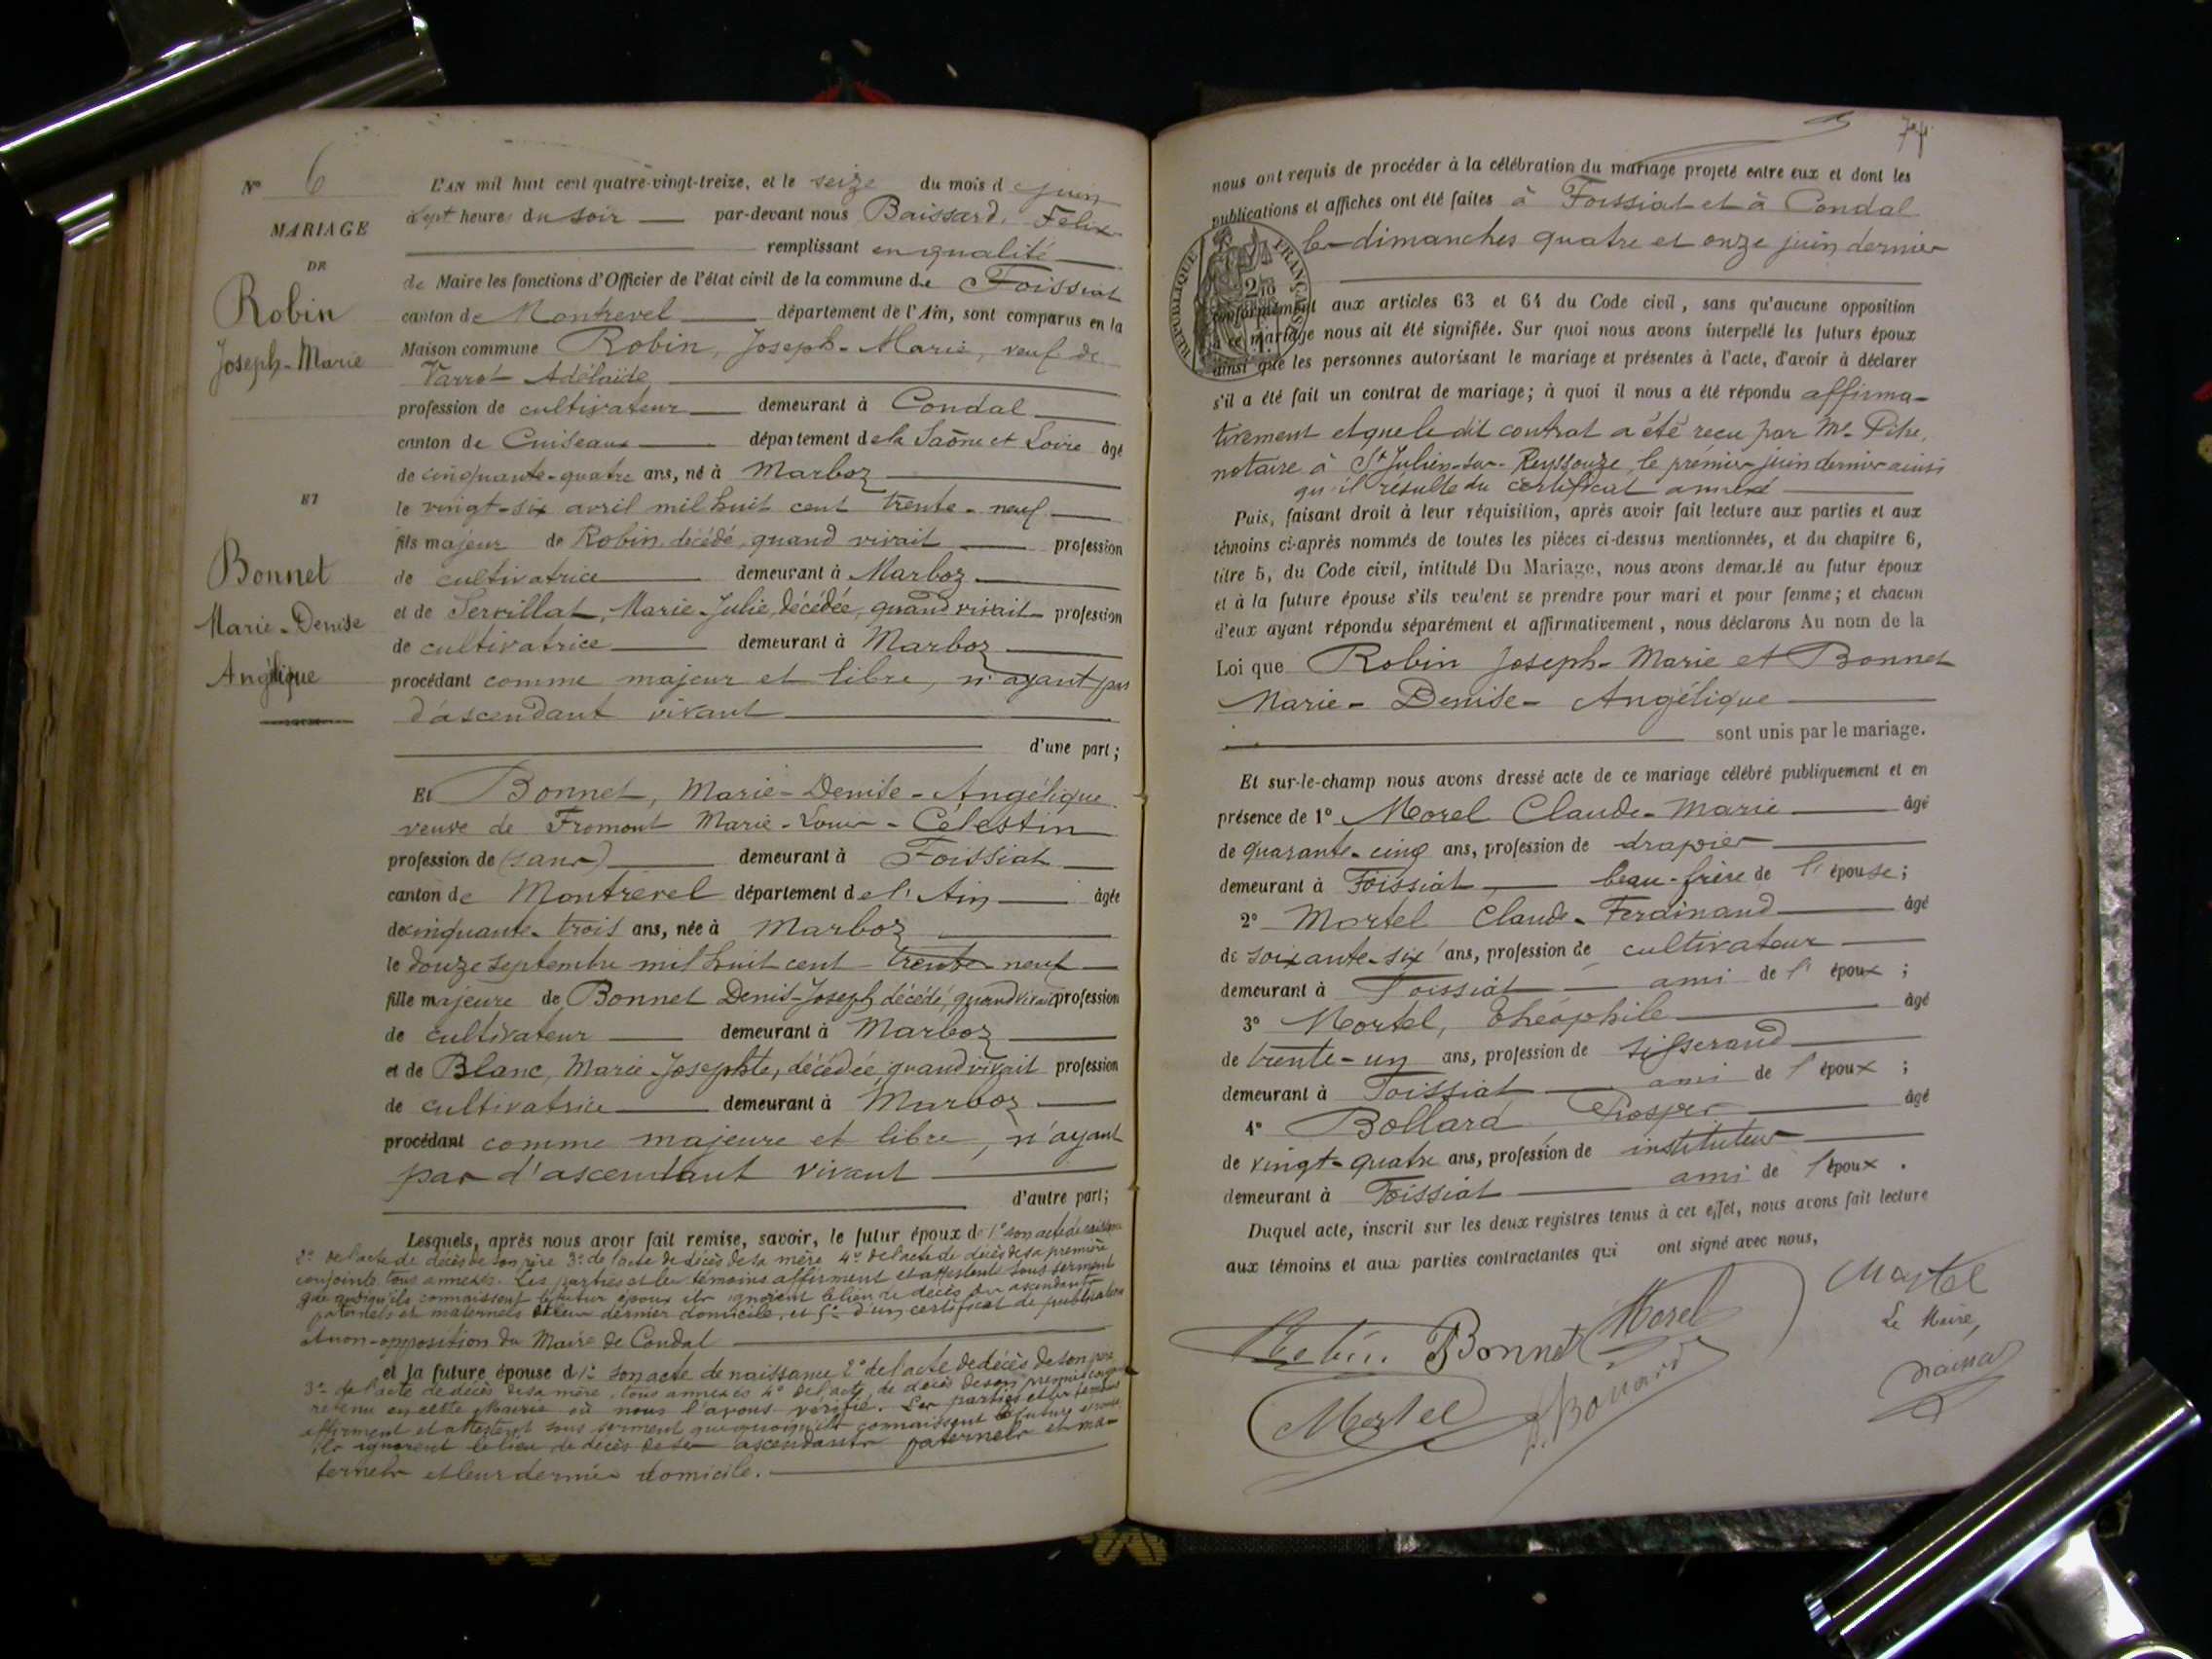 N° 6
MARIAGE
DE
Robin
Joseph-Marie
ET
Bonnet
Marie-Denise
Angélique
L'AN mil huit cent quatre-vingt-treize, et le seize du mois de juin
à sept heures du soir par-devant nous Baissard, Félix
remplissant en qualité
de Maire les fonctions d'Officier de l'état civil de la commune de Foissiat
canton de Montrevel département de l'Ain, sont comparus en la
Maison commune Robin, Joseph-Marie, veuf de
Varrot Adélaïde
profession de cultivateur demeurant à Condal
canton de Cuiseaux département de la Saône et Loire âgé
de cinquante-quatre ans, né à Marboz
le vingt-six avril mil huit cent trente-neuf
fils majeur de Robin, décédé, quand vivait profession
de cultivatrice demeurant à Marboz
et de Servillat, Marie-Julie, décédée, quand vivait profession
de cultivatrice demeurant à Marboz
procédant comme majeur et libre, n'ayant pas
d'ascendant vivant
d'une part ;
Et Bonnet, Marie-Denise-Angélique
veuve de Fromont Marie-Louis-Célestin
profession de (sans) demeurant à Foissiat
canton de Montrevel département de l'Ain âgée
de cinquante-trois ans, née à Marboz
le douze septembre mil huit cent trente-neuf
fille majeure de Bonnet Denis-Joseph décédé, quand vivait profession
de cultivateur demeurant à Marboz
et de Blanc, Marie-Josephte, décédée, quand vivait profession
de cultivatrice demeurant à Marboz
procédant comme majeure et libre, n'ayant
pas d'ascendant vivant
d'autre part ;
Lesquels, après nous avoir fait remise, savoir, le futur époux de 1° son acte de naissance
2° de l'acte de décès de son père 3° de l'acte de décès de sa mère 4° de l'acte de décès de sa première
conjointe, tous annexés. Les parties et les témoins affirment et attestent sous serment
que quoiqu'ils connaissent le futur époux ils ignorent le lieu de décès des ascendants
paternels et maternels et leur dernier domicile, et 5° d'un certificat de publication
et non-opposition du Maire de Condal
et la future épouse de 1° son acte de naissance 2° de l'acte de décès de son père
3° de l'acte de décès de sa mère, tous annexés 4° de l'acte de décès de son premier conjoint
retenu en cette Mairie où nous l'avons vérifié. Les parties et les témoins
affirment et attestent sous serment que quoiqu'ils connaissent la future épouse
ils ignorent le lieu de décès de ses ascendants paternels et ma-
ternels et leur dernier domicile.
nous ont requis de procéder à la célébration du mariage projeté entre eux et dont les
publications et affiches ont été faites à Foissiat et à Condal
les dimanches quatre et onze juin dernier
RÉPUBLIQUE FRANÇAISE
conformément aux articles 63 et 64 du Code civil, sans qu'aucune opposition
à ce mariage nous ait été signifiée. Sur quoi nous avons interpellé les futurs époux
ainsi que les personnes autorisant le mariage et présentes à l'acte, d'avoir à déclarer
s'il a été fait un contrat de mariage ; à quoi il nous a été répondu affirma-
tivement et que le dit contrat a été reçu par Me
notaire à St Julien-sur-Reyssouze, le premier juin dernier ainsi
qu'il résulte du certificat annexé
Puis, faisant droit à leur réquisition, après avoir fait lecture aux parties et aux
témoins ci-après nommés de toutes les pièces ci-dessus mentionnées, et du chapitre 6,
titre 5, du Code civil, intitulé Du Mariage, nous avons demandé au futur époux
et à la future épouse s'ils veulent se prendre pour mari et pour femme ; et chacun
d'eux ayant répondu séparément et affirmativement, nous déclarons Au nom de la
Loi que Robin Joseph-Marie et Bonnet
Marie-Denise-Angélique
sont unis par le mariage.
Et sur-le-champ nous avons dressé acte de ce mariage célébré publiquement et en
présence de 1° Morel Claude-Marie âgé
de quarante-cinq ans, profession de drapier
demeurant à Foissiat beau-frère de l'épouse ;
2° Mortel Claude-Ferdinand âgé
de soixante-six ans, profession de cultivateur
demeurant à Foissiat ami de l'époux ;
3° Mortel, Théophile âgé
de trente-un ans, profession de tisserand
demeurant à Foissiat ami de l'époux ;
4° Bollard Prosper âgé
de vingt-quatre ans, profession de instituteur
demeurant à Foissiat ami de l'époux.
Duquel acte, inscrit sur les deux registres tenus à cet effet, nous avons fait lecture
aux témoins et aux parties contractantes qui ont signé avec nous,
Robin Bonnet Morel Mortel
Le Maire,
Mortel P. Bollard Baissard